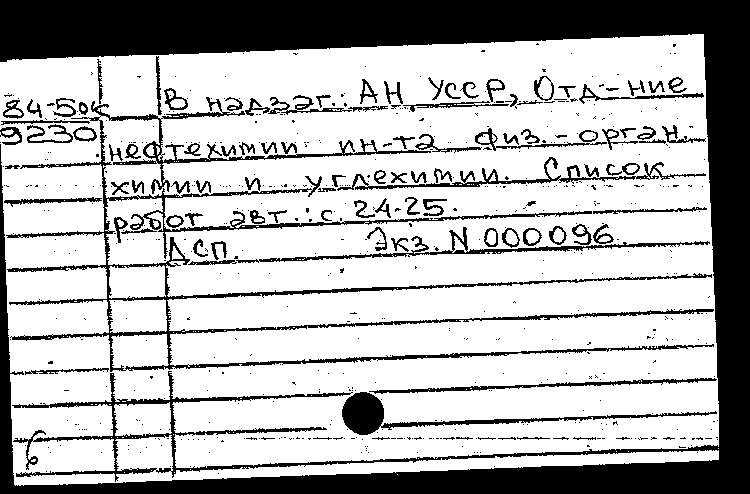 84-5ок В надзаг.: АН УССР, Отд-ние
9230 нефтехимии ин-та физ.-орган.
химии и углехимии. Список
работ авт.: с. 24-25.
ДСП. Экз. N 000096.
б